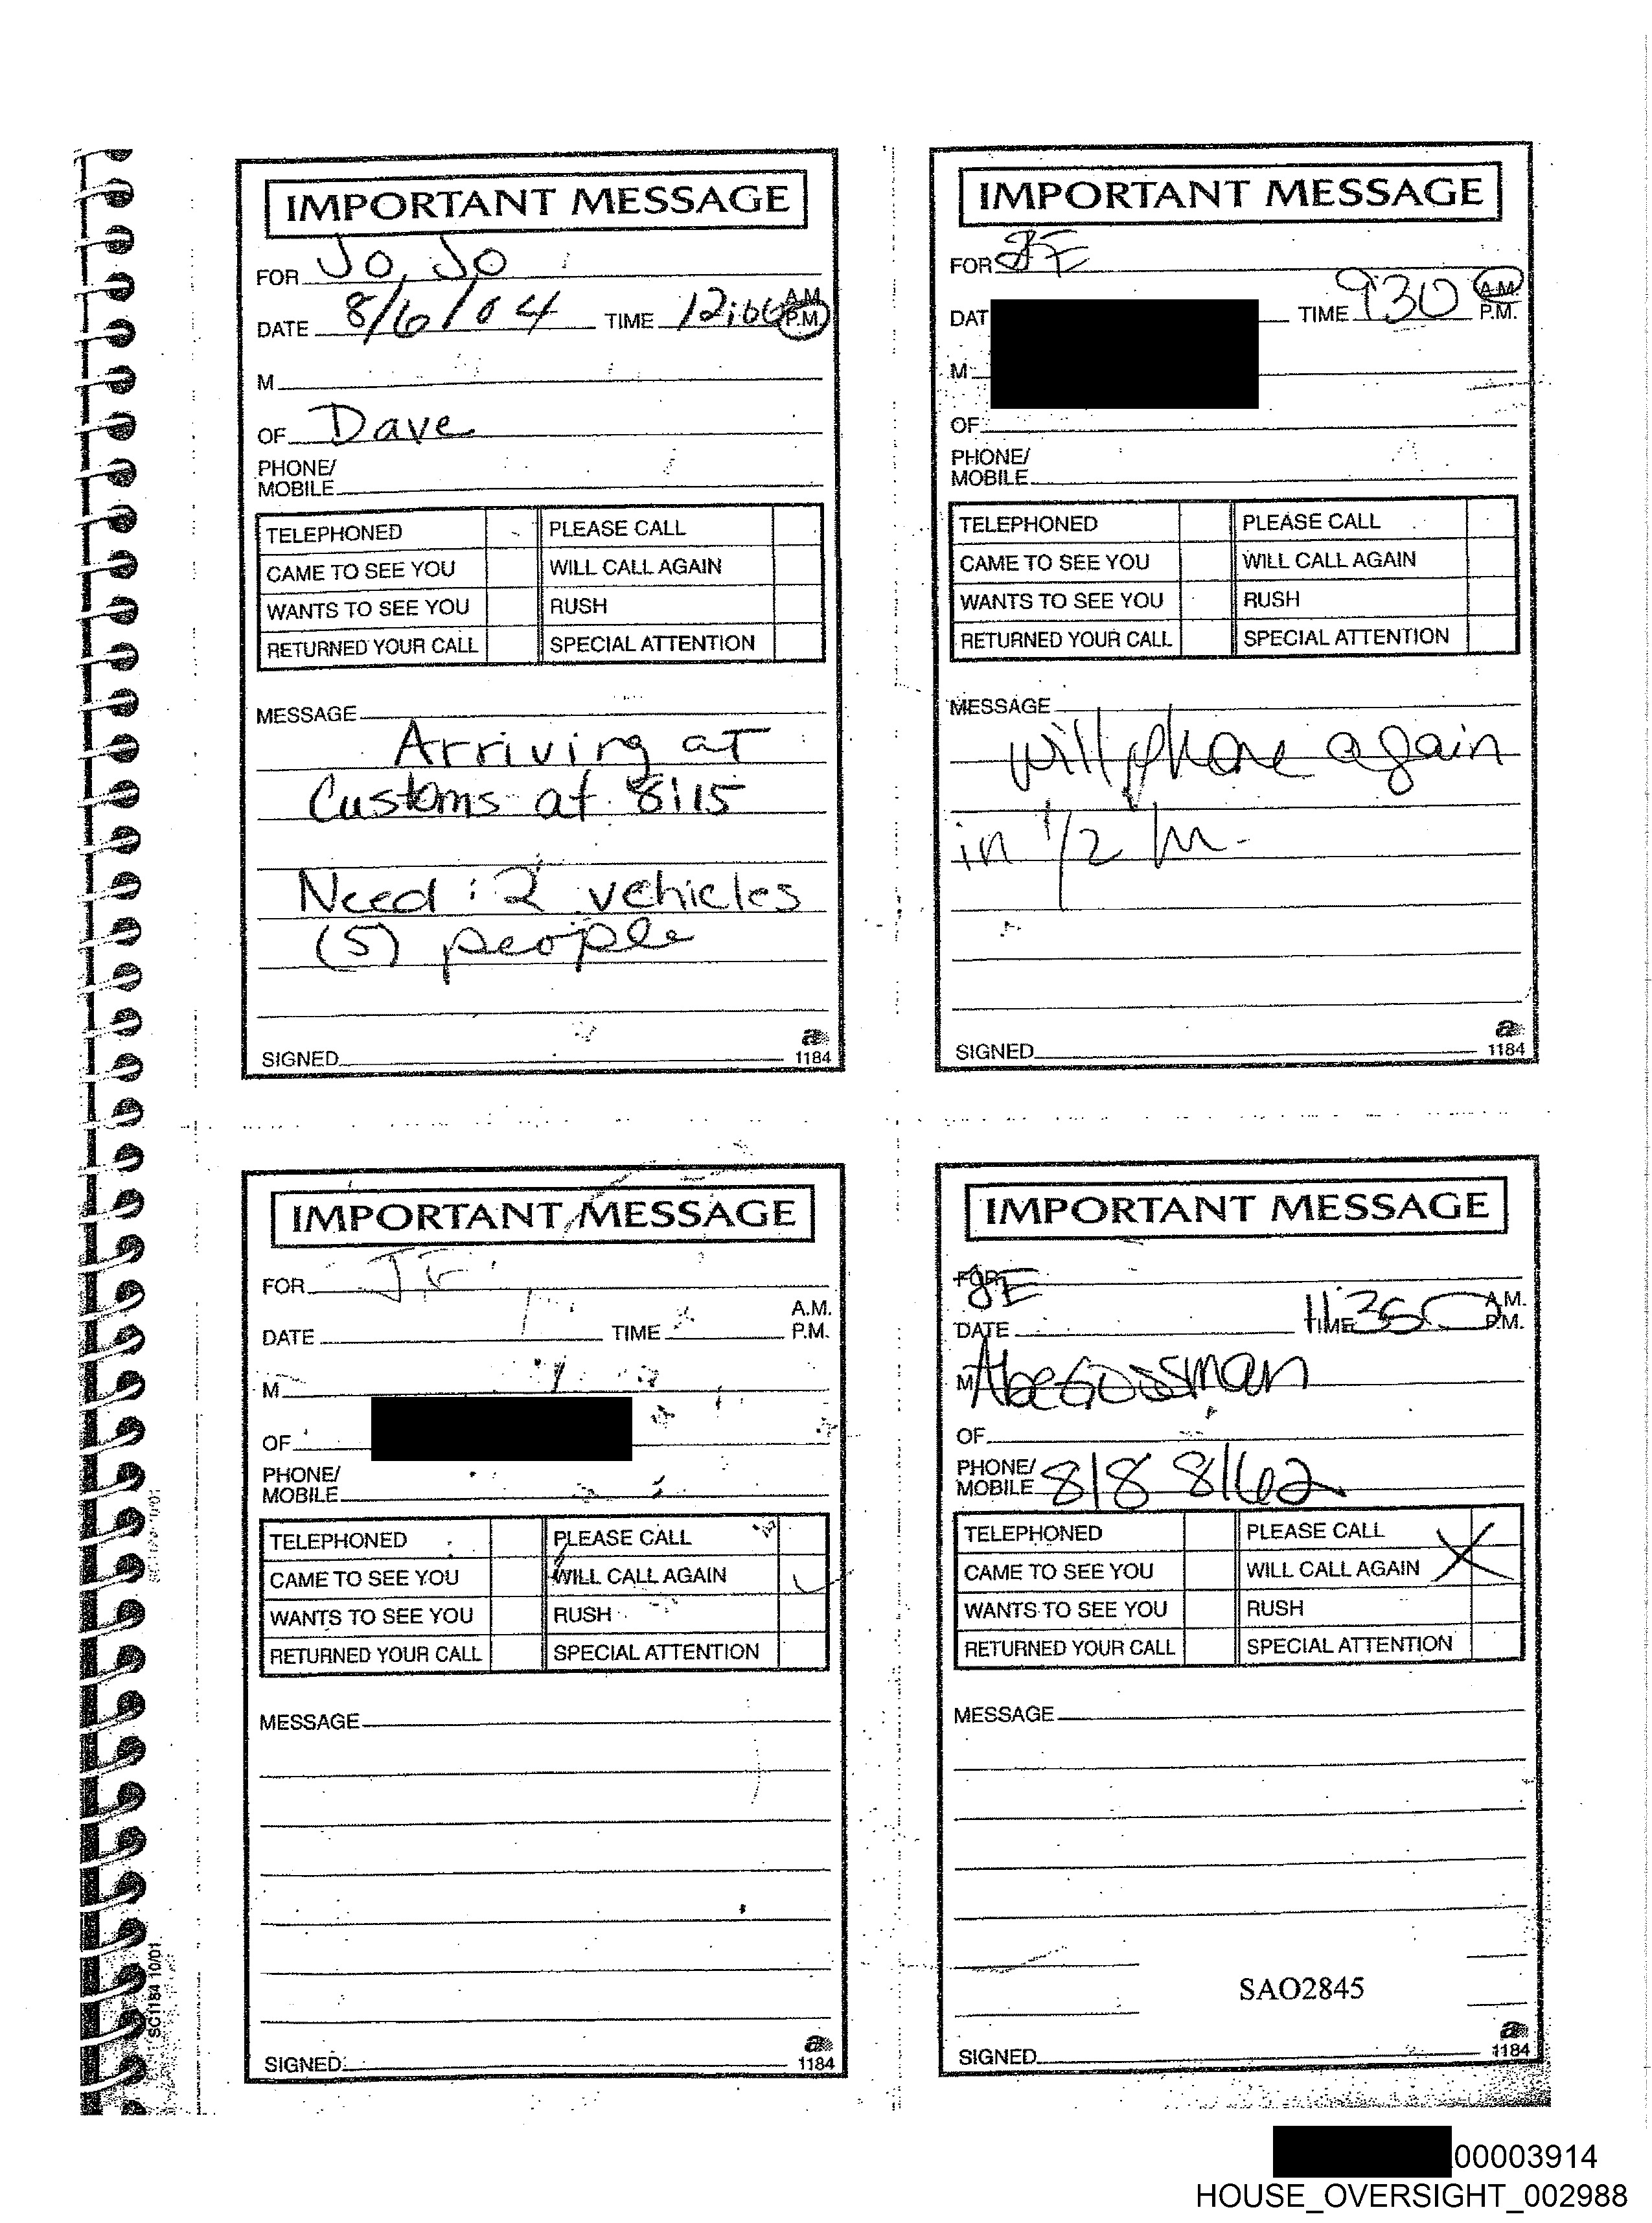 IMPORTANT MESSAGE
FOR Jo, Jo
DATE 8/6/04 TIME A.M.
P.M.
M
OF Dave
PHONE/
MOBILE
TELEPHONED PLEASE CALL
CAME TO SEE YOU WILL CALL AGAIN
WANTS TO SEE YOU RUSH
RETURNED YOUR CALL SPECIAL ATTENTION
MESSAGE
Arriving at
Customs at 8:15
Need : 2 vehicles
(5) people
SIGNED
a
1184
IMPORTANT MESSAGE
FOR JE
DAT TIME 930 A.M.
P.M.
M
OF
PHONE/
MOBILE
TELEPHONED PLEASE CALL
CAME TO SEE YOU WILL CALL AGAIN
WANTS TO SEE YOU RUSH
RETURNED YOUR CALL SPECIAL ATTENTION
MESSAGE
will phone again
in 1/2 hr.
SIGNED
a
1184
IMPORTANT MESSAGE
FOR
DATE TIME A.M.
P.M.
M
OF
PHONE/
MOBILE
TELEPHONED PLEASE CALL
CAME TO SEE YOU WILL CALL AGAIN
WANTS TO SEE YOU RUSH
RETURNED YOUR CALL SPECIAL ATTENTION
MESSAGE
SIGNED
a
1184
IMPORTANT MESSAGE
FOR JE
DATE TIME A.M.
P.M.
M
OF
PHONE/
MOBILE 818 8162
TELEPHONED PLEASE CALL
CAME TO SEE YOU WILL CALL AGAIN
WANTS TO SEE YOU RUSH
RETURNED YOUR CALL SPECIAL ATTENTION
MESSAGE
SAO2845
SIGNED
a
1184
SC1184 10/01
00003914
HOUSE_OVERSIGHT_002988